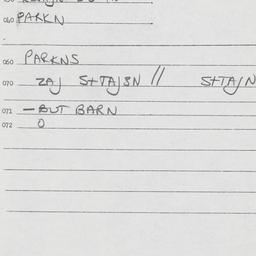 040 PARKN
060 PARKNS
070 ZAJ S+TAJSN // S+TAJN
071 - BUT BARN
072 O